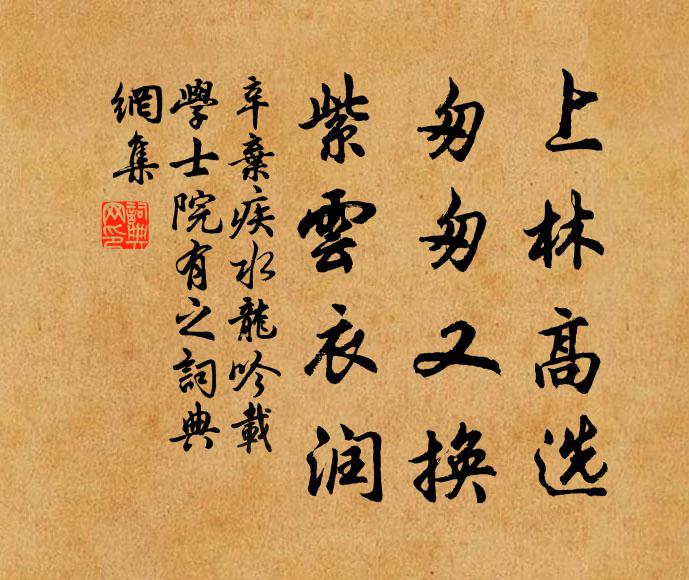 上林高选
匆匆又换
紫雲衣润
辛棄疾水龍吟載
學士院有之詞典
網集
詞典
网印